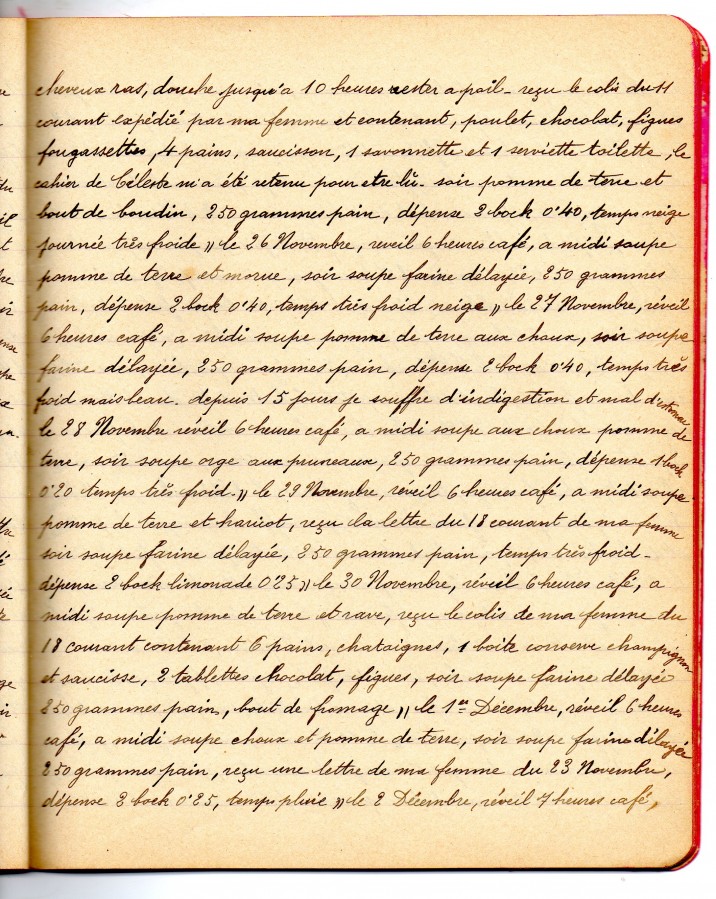 cheveux ras, douche jusqu'a 10 heures rester a poil - reçu le colis du 11
courant expédié par ma femme et contenant, poulet, chocolat, figues
fougassettes, 4 pains, saucisson, 1 savonnette et 1 serviette toilette, le
cahier de Céleste m'a été retenu pour etre lû - soir pomme de terre et
bout de boudin, 250 grammes pain, dépense 2 bock 0'40, temps neige
journée très froide ,, le 26 Novembre, reveil 6 heures café, a midi soupe
pomme de terre et morue, soir soupe farine délayée, 250 grammes
pain, dépense 2 bock 0'40, temps très froid neige ,, le 27 Novembre, réveil
6 heures café, a midi soupe pomme de terre aux choux, soir soupe
farine délayée, 250 grammes pain, dépense 2 bock 0'40, temps très
froid mais beau - depuis 15 jours je souffre d'indigestion et mal d'estomac
le 28 Novembre réveil 6 heures café, a midi soupe aux choux pomme de
terre, soir soupe orge aux pruneaux, 250 grammes pain, dépense 1 bock
0'20 temps très froid - ,, le 29 Novembre, réveil 6 heures café, a midi soupe
pomme de terre et haricot, reçu la lettre du 18 courant de ma femme
soir soupe farine délayée, 250 grammes pain, temps très froid -
dépense 2 bock limonade 0'25 ,, le 30 Novembre, réveil 6 heures café, a
midi soupe pomme de terre et rave, reçu le colis de ma femme du
18 courant contenant 6 pains, chataignes, 1 boite conserve champignon
et saucisse, 2 tablettes chocolat, figues, soir soupe farine délayée
250 grammes pain, bout de fromage ,, le 1er Décembre, réveil 6 heures
café, a midi soupe choux et pomme de terre, soir soupe farine délayée
250 grammes pain, reçu une lettre de ma femme du 23 Novembre,
dépense 2 bock 0'25, temps pluie ,, le 2 Décembre, réveil 7 heures café,